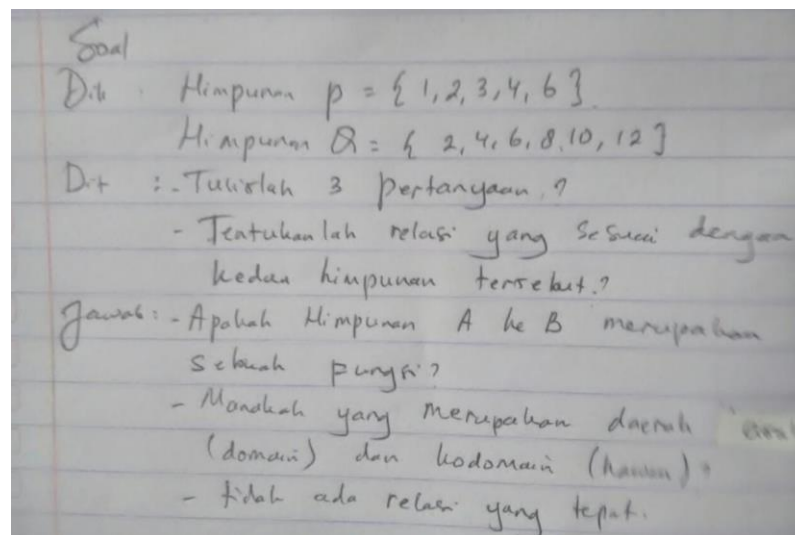 Soal
Dik : Himpunan p = { 1, 2, 3, 4, 6 }
Himpunan Q = { 2, 4, 6, 8, 10, 12 }
Dit : - Tulislah 3 pertanyaan ?
- Tentukanlah relasi yang sesuai dengan
kedua himpunan tersebut ?
Jawab : - Apakah Himpunan A ke B merupakan
sebuah pungsi ?
- Manakah yang merupakan daerah
(domain) dan kodomain (kawan) ?
- tidak ada relasi yang tepat.